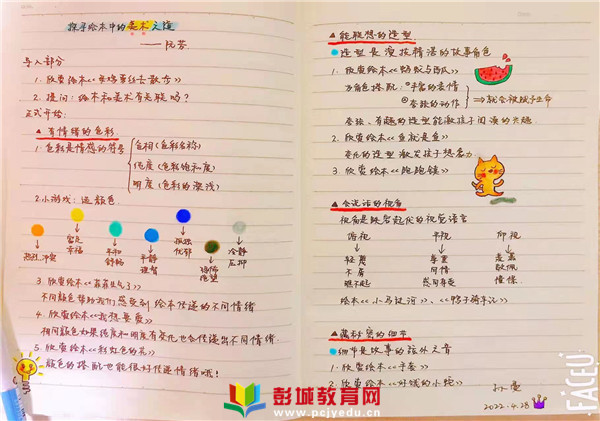 探寻绘本中的美术之道
——阮芳
导入部分
1. 欣赏绘本《母鸡萝丝去散步》
2. 提问：绘本和美术有关联吗？
正式开始：
▲有情绪的色彩
1. 色彩是情感的符号
色相（色彩名称）
纯度（色彩饱和度）
明度（色彩的深浅）
2. 小游戏：选颜色
热烈、冲突
富足 幸福
平和 舒畅
平静 理智
孤独 忧郁
恐怖 绝望
冷静 压抑
3. 欣赏绘本《菲菲生气了》
不同颜色帮助我们感受到绘本传递的不同情绪
4. 欣赏绘本《我想要爱》
相同颜色如果纯度和明度有变化也会传递出不同情绪.
5. 欣赏绘本《彩虹色的花》
颜色的搭配也能很好传递情绪哦！
▲能联想的造型
造型是演技精湛的故事角色
1. 欣赏绘本《蚂蚁与西瓜》
为角色搭配：
①丰富的表情
②夸张的动作
⇒就会被赋予生命
夸张、有趣的造型能激孩子阅读的兴趣.
2. 欣赏绘本《鱼就是鱼》
变化的造型激发孩子想象力
3. 欣赏绘本《跑跑镇》
▲会说话的视角
视角是跌宕起伏的视觉语言
俯视 平视 仰视
轻蔑 尊重 崇高
不屑 同情 敬佩
瞧不起 感同身受 憧憬
绘本《小马过河》、《鸭子骑车记》
▲藏秘密的细节
细节是故事的弦外之音
1. 欣赏绘本《手套》
2. 欣赏绘本《好饿的小蛇》
2022.4.28
FACEU
彭城教育网
www.pcjyedu.cn